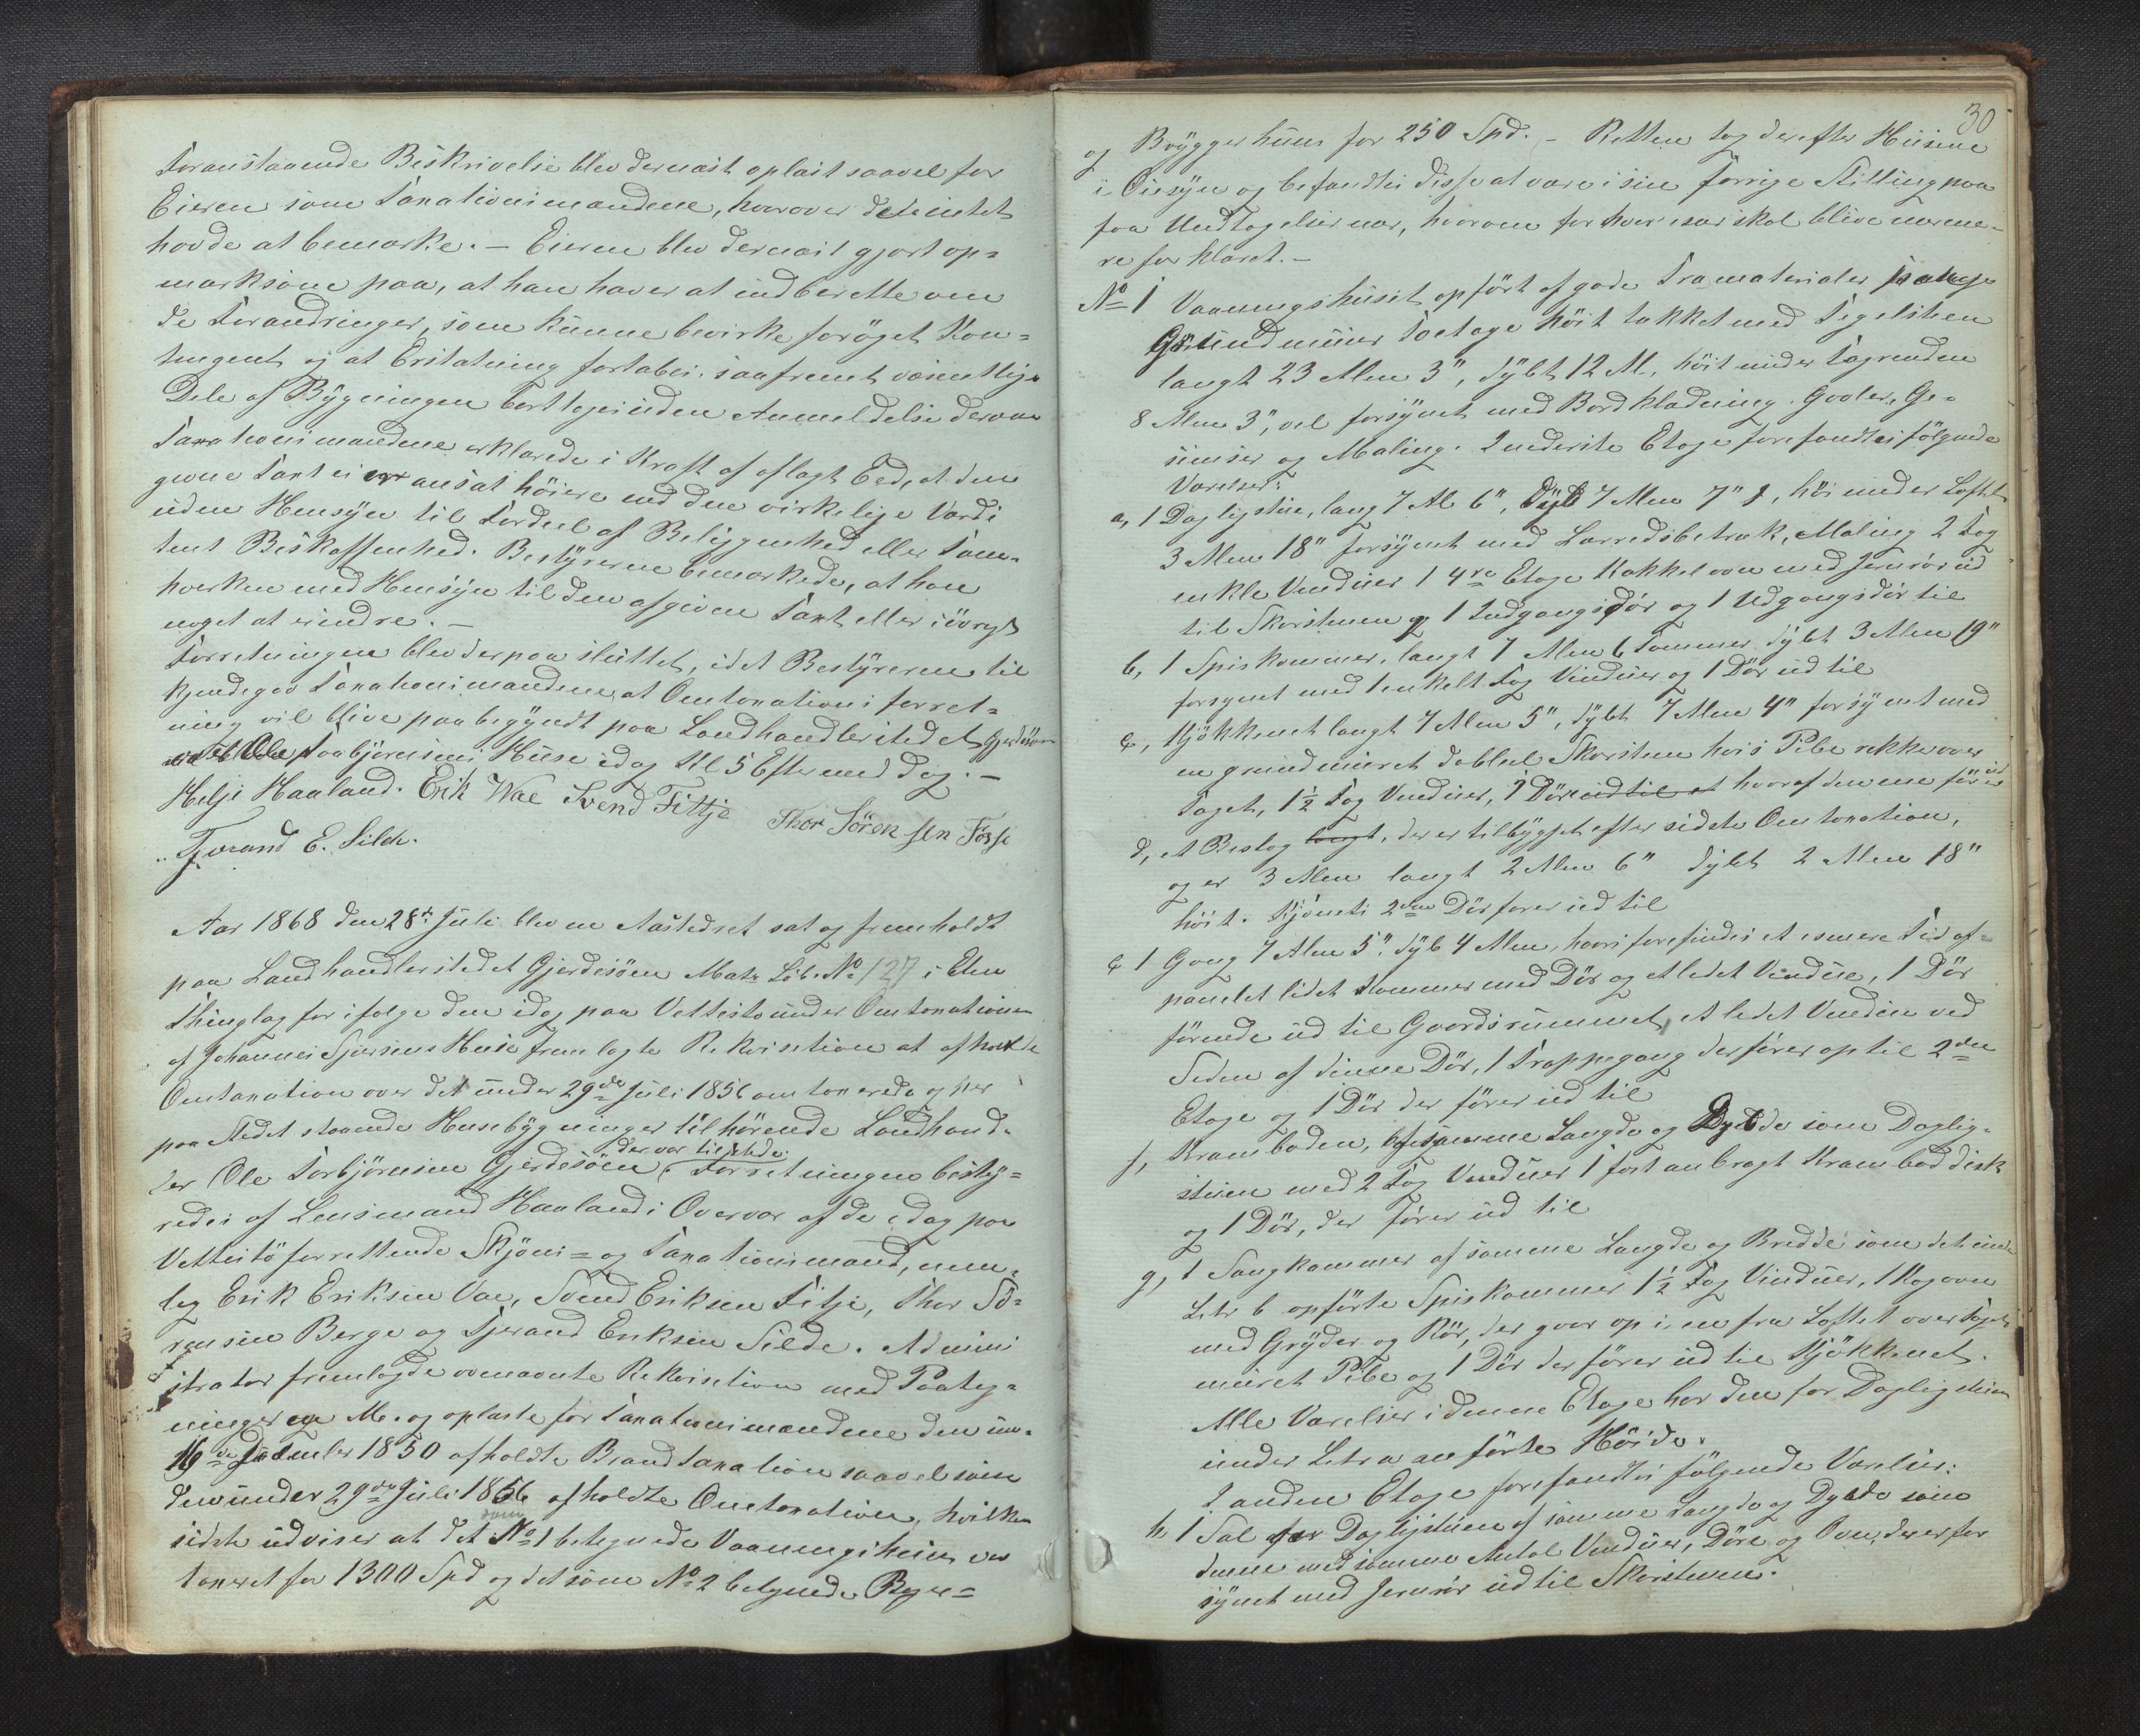 Foranstaaende Beskrivelse blev dernæst oplæst saavel for
Eieren som Taxationsmændene, hvorover de intet
havde at bemærke. — Eieren blev dernæst gjort op=
mærksom paa, at han haver at indberette om
de Forandringer, som kunne bevirke forøget Kon=
tingent og at Erstatning fortabes, saafremt væsentlige
Dele af Bygningen borttages uden Anmeldelse derom
Taxationsmændene erklærede i Kraft af aflagt Eed, at den
givne Taxt ei er ansat høiere end den virkelige Værdi
uden Hensyn til Fordeel af Beliggenhed eller Tom=
tens Beskaffenhed. Bestyreren bemærkede, at han
hverken med Hensyn til den afgivne Taxt eller iøvrigt
noget at erindre. —
Forretningen blev derpaa sluttet, idet Bestyreren til
kjendegav Taxationsmændene, at Omtaxationsforret=
ning vil blive paabegyndt paa Landhandlerstedet Gjerdesøen
Ole Torbjørnsens Huse idag Kl 5 Eftermiddag. —
Helje Haaland. Erik Wae Svend Fittje Thor Sörensen
Tjerand E. Silde.
Aar 1868 den 28de Juli blev en Aastedsret sat og fremholdt
paa Landhandlerstedet Gjerdesøen Matr. Løb. No 127 i Etne
Thinglag for ifølge den idag paa Vettestø under Omtaxationen
af Johannes Huse fremlagte Rekvisition at afholde
Omtaxation over det under 29de Juli 1856 omtaxerede og her
paa Stedet staaende Husebygninger tilhørende Landhand=
ler Ole Torbjørnsen Gjerdesøen, der var tilstede. Forretningen besty=
redes af Lensmand Haaland i Overvær af de idag paa
Vettestø forrettende Skjøns= og Taxationsmænd, nem=
lig Erik Eriksen Vae, Svend Eriksen Fitje, Thor Sö=
rensen Berge og Tjerand Eriksen Silde. Admini
strator fremlagde ovennævnte Rekvisition med Paateg=
ninger og oplæste for Taxationsmændene den un=
16de December 1850 afholdte Brandtaxation saavel som
den under 29de Juli 1856 afholdte Omtaxation, hvilken
sidste udviser at det som No 1 betegnede Vaaningshuus var
taxeret for 1300 Spd og det som No 2 betegnede
30
og Bryggerhuus for 250 Spd. — Retten tog derefter Husene
i Øiesyn og befandtes disse at være i sin forrige Stilling paa
faa Undtagelser nær, hvorom for hver især skal blive nærme=
re forklaret. —
No 1 Vaaningshuset opført af gode Træmaterialer paa
Grundmuur Toetage høit takket med Tegelsteen
langt 23 Alen 3", dybt 12 Al, høit under Tagrenden
8 Alen 3", vel forsynet med Bordklædning. Gooler, Ge=
simser og Maling. I nederste Etage forefandtes følgende
Værelser:
a, 1 Dagligstue, lang 7 Al 6", Dyb 7 Alen 7", høi under Loftet
3 Alen 18" forsynet med Lærredsbetræk, Maling 2 Fag
enkle Vinduer 1 4re Etage Kakkelovn med Jernrør ud
til Skorstenen og 1 Indgangsdør og 1 Udgangsdør til
b, 1 Spiskammer, langt 7 Alen 6 Tommer dybt 3 Alen 19"
forsynet med 1 enkelt Fag Vinduer og 1 Dør ud til
c, Kjøkkenet langt 7 Alen 5", dybt 7 Alen 4" forsynet med
en grundmuret dobbel Skorsteen hvis Pibe rekker over
Taget, 1½ Fag Vinduer, 1 Dør ud til et hvoraf denne fører ud
d, et Beslag langt, der er tilbygget efter sidste Omtaxation,
og er 3 Alen langt 2 Alen 6" dybt 2 Alen 18"
høit. 2den Dør fører ud til
e 1 Gang 7 Alen 5" dyb 4 Alen, hvori forefindes et af=
panelet lidet Kammer med Dør og et lidet Vindue, 1 Dør
førende ud til Gaardsrummet, et lidet Vindue ved
Siden af denne Dør, 1 Trappegang der fører op til 2den
Etage og 1 Dør der fører ud til
f, Kramboden, af samme Længde og Dybde som Daglig=
stuen med 2 Fag Vinduer 1 fast anbragt Krambod disk
og 1 Dør, der fører ud til
g, 1 Sengkammer af samme Længde og Bredde som det under
Litr b opførte Spiskammer 1½ Fag Vinduer, 1 Kogovn
med Gryder og Rør, der gaar op i en fra Loftet over Taget
muret Pibe og 1 Dør der fører ud til Kjøkkenet.
Alle Værelser i denne Etage har den for Dagligstuen
under Litr a anførte Høide.
I anden Etage forefandtes følgende Værelser:
h, 1 Sal over Dagligstuen af samme Længde og Dybde som
denne med samme Antal Vinduer, Døre og Ovn, der er for
synet med Jernrør ud til Skorstenen.